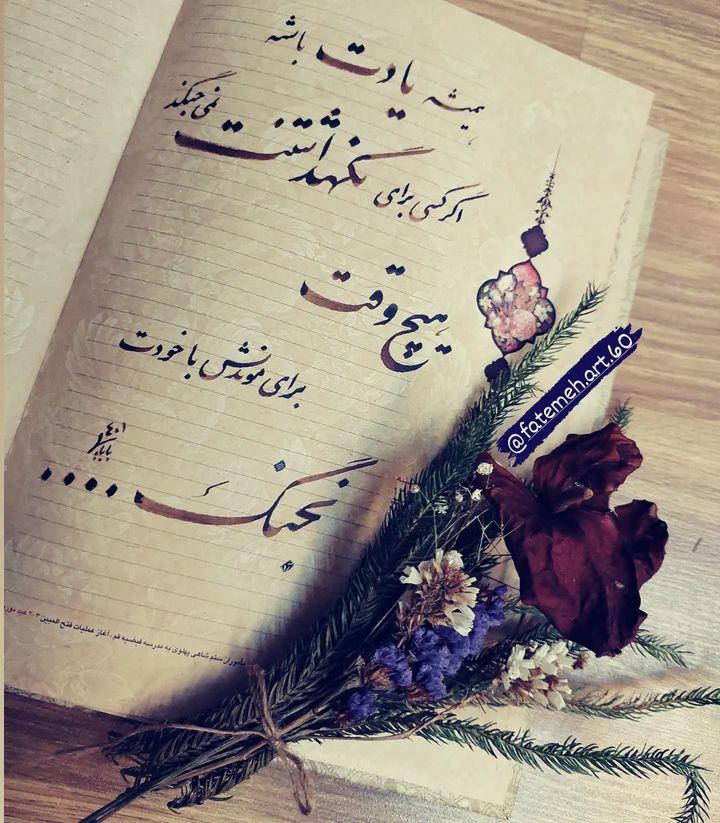 همیشه یادت باشه
اگر کسی برای نگهداشتنت نمی‌جنگد
هیچ وقت
برای موندنش با خودت
نجنگ....
@fatemeh.art.60
مأموران ستم شاهی پهلوی به مدرسه فیضیه قم ، آغاز عملیات فتح المبین